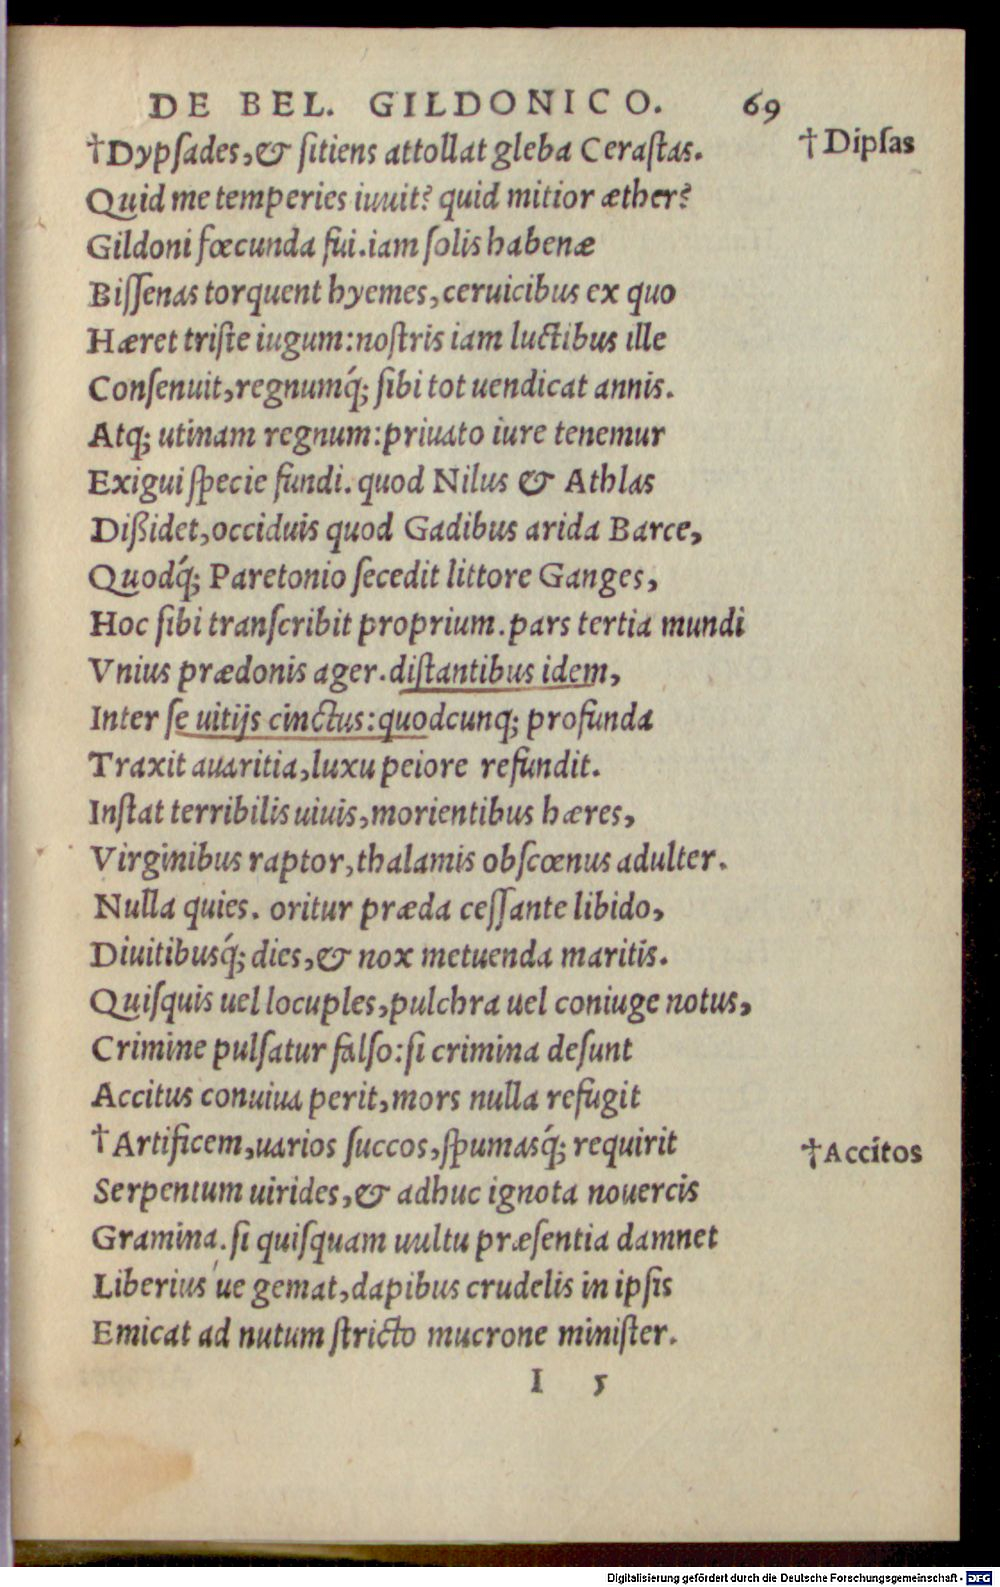 DE BEL. GILDONICO. 69
†Dypſades,& ſitiens attollat gleba Ceraſtas. †Dipſas
Quid me temperies iuuit? quid mitior æther?
Gildoni fœcunda fui.iam ſolis habenæ
Biſſenas torquent hyemes,ceruicibus ex quo
Hæret triſte iugum:noſtris iam luctibus ille
Conſenuit,regnumq́; ſibi tot uendicat annis.
Atq; utinam regnum:priuato iure tenemur
Exigui ſpecie fundi. quod Nilus & Athlas
Dißidet,occiduis quod Gadibus arida Barce,
Quodq́; Paretonio ſecedit littore Ganges,
Hoc ſibi tranſcribit proprium.pars tertia mundi
Vnius prædonis ager.diſtantibus idem,
Inter ſe uitijs cinctus:quodcunq; profunda
Traxit auaritia,luxu peiore refundit.
Inſtat terribilis uiuis,morientibus hæres,
Virginibus raptor,thalamis obſcœnus adulter.
Nulla quies. oritur præda ceſſante libido,
Diuitibusq́; dies,& nox metuenda maritis.
Quiſquis uel locuples,pulchra uel coniuge notus,
Crimine pulſatur falſo:ſi crimina deſunt
Accitus conuiua perit,mors nulla refugit
†Artificem,uarios ſuccos,ſpumasq́; requirit †Accitos
Serpentum uirides,& adhuc ignota nouercis
Gramina.ſi quiſquam uultu præſentia damnet
Liberius ue gemat,dapibus crudelis in ipſis
Emicat ad nutum ſtricto mucrone miniſter.
I 5
Digitalisierung gefördert durch die Deutsche Forschungsgemeinschaft - DFG